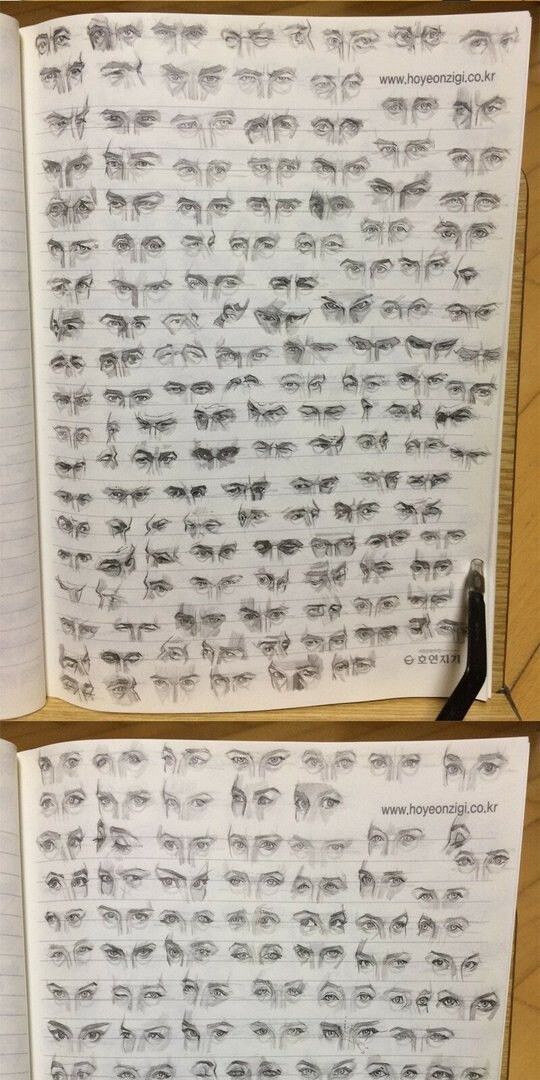 www.hoyeonzigi.co.kr
호연지기
www.hoyeonzigi.co.kr